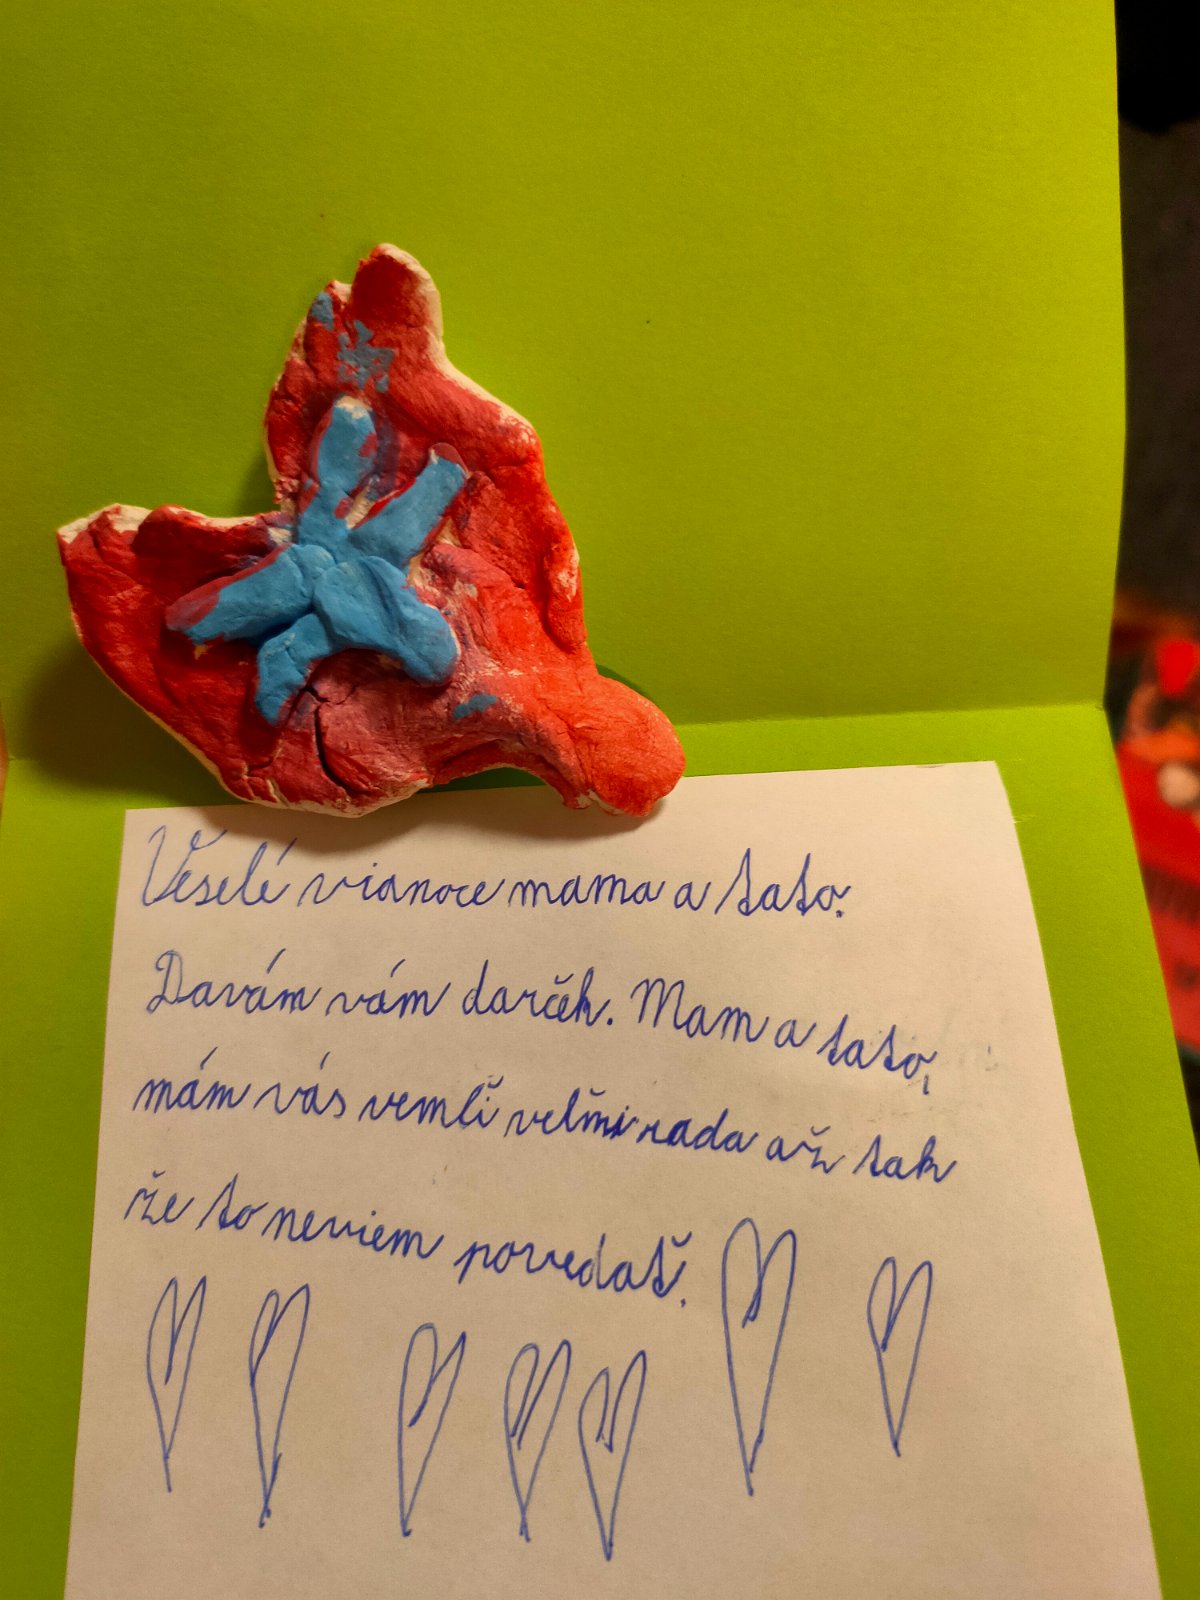 Veselé vianoce mama a tato.
Davám vám darček. Mam a tato,
mám vás vemli veľmi rada až tak
že to neviem povedať.